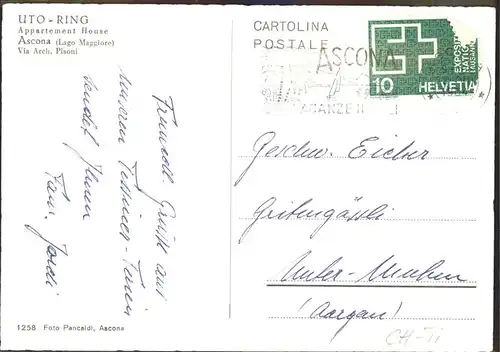 UTO - RING
Appartement House
Ascona (Lago Maggiore)
Via Arch. Pisoni
CARTOLINA
POSTALE
ASCONA
VACANZE
EXPOSITION
NATIONALE
LAUSANNE
10 HELVETIA
Freundl. Grüße aus
unseren Tessiner-Ferien
sendet Ihnen
Fam. Jordi
Geschw. Eicher
Geitengässli
Unter-Muhen
(Aargau)
CH-Ti
1258 Foto Pancaldi, Ascona